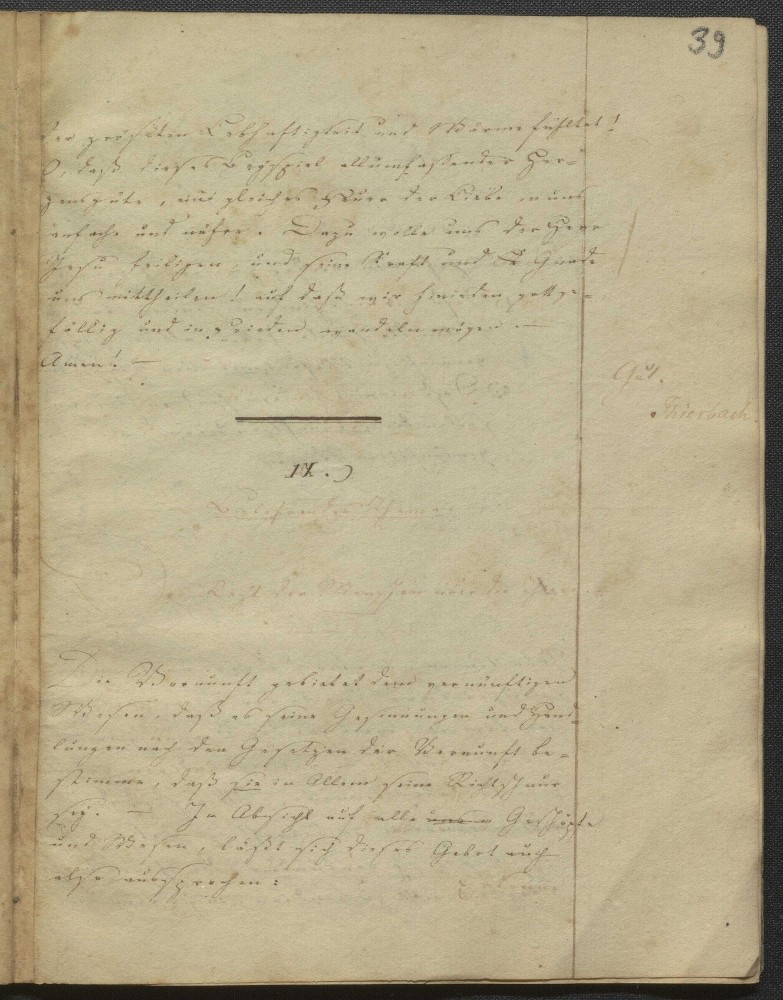 39
der größten Lebhaftigkeit und Wärme fühltet!
O, daß dieses Beyspiel allumfassender Her-
zensgüte, gleiches der Liebe in uns
anfache und nähre. Dazu wolle uns der Herr
Jesu heiligen, und seine Kraft und Gnade
uns mittheilen! auf daß wir hinieden gottge-
fällig und in Frieden wandeln mögen. —
Amen! —
Gut.
Thierbach.
IX.)
Das Recht der Menschen über die Thiere.
Die Vernunft gebietet dem vernünftigen
Wesen, daß es seine Gesinnungen und Hand-
lungen nach den Gesetzen der Vernunft be-
stimme, daß sie in Allem seine Richtschnur
sey. — In Absicht auf alle Geschöpfe
und Wesen, läßt sich dieses Gebot auch
also aussprechen: